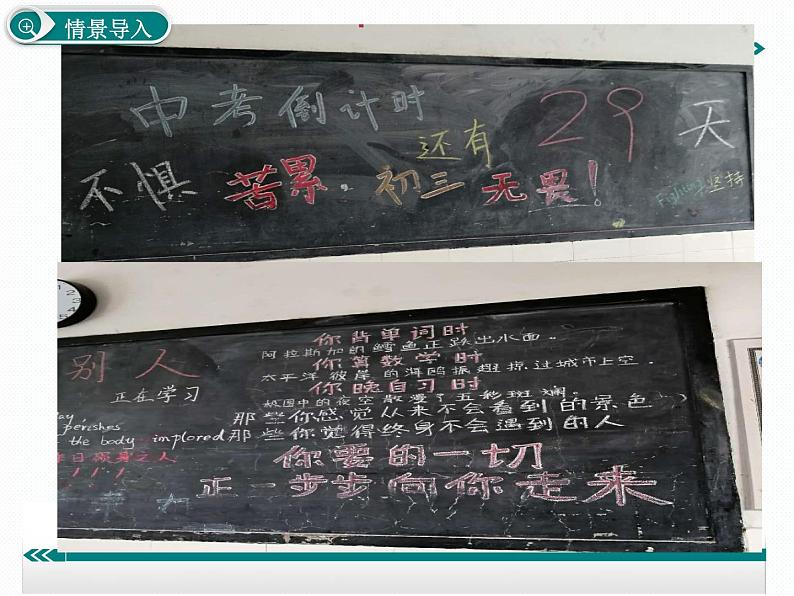 情景导入
中考倒计时
还有 29 天
不惧 苦累,初三 无畏!
Fighting 坚持
别人
正在学习
perishes
the body implored
你背单词时
阿拉斯加的鳕鱼正跃出水面。
你算数学时
太平洋彼岸的海鸥振翅掠过城市上空.
你晚自习时
极图中的夜空散漫了五彩斑斓。
那些你感觉从来不会看到的景色
那些你觉得终身不会遇到的人
你要的一切
正一步步向你走来